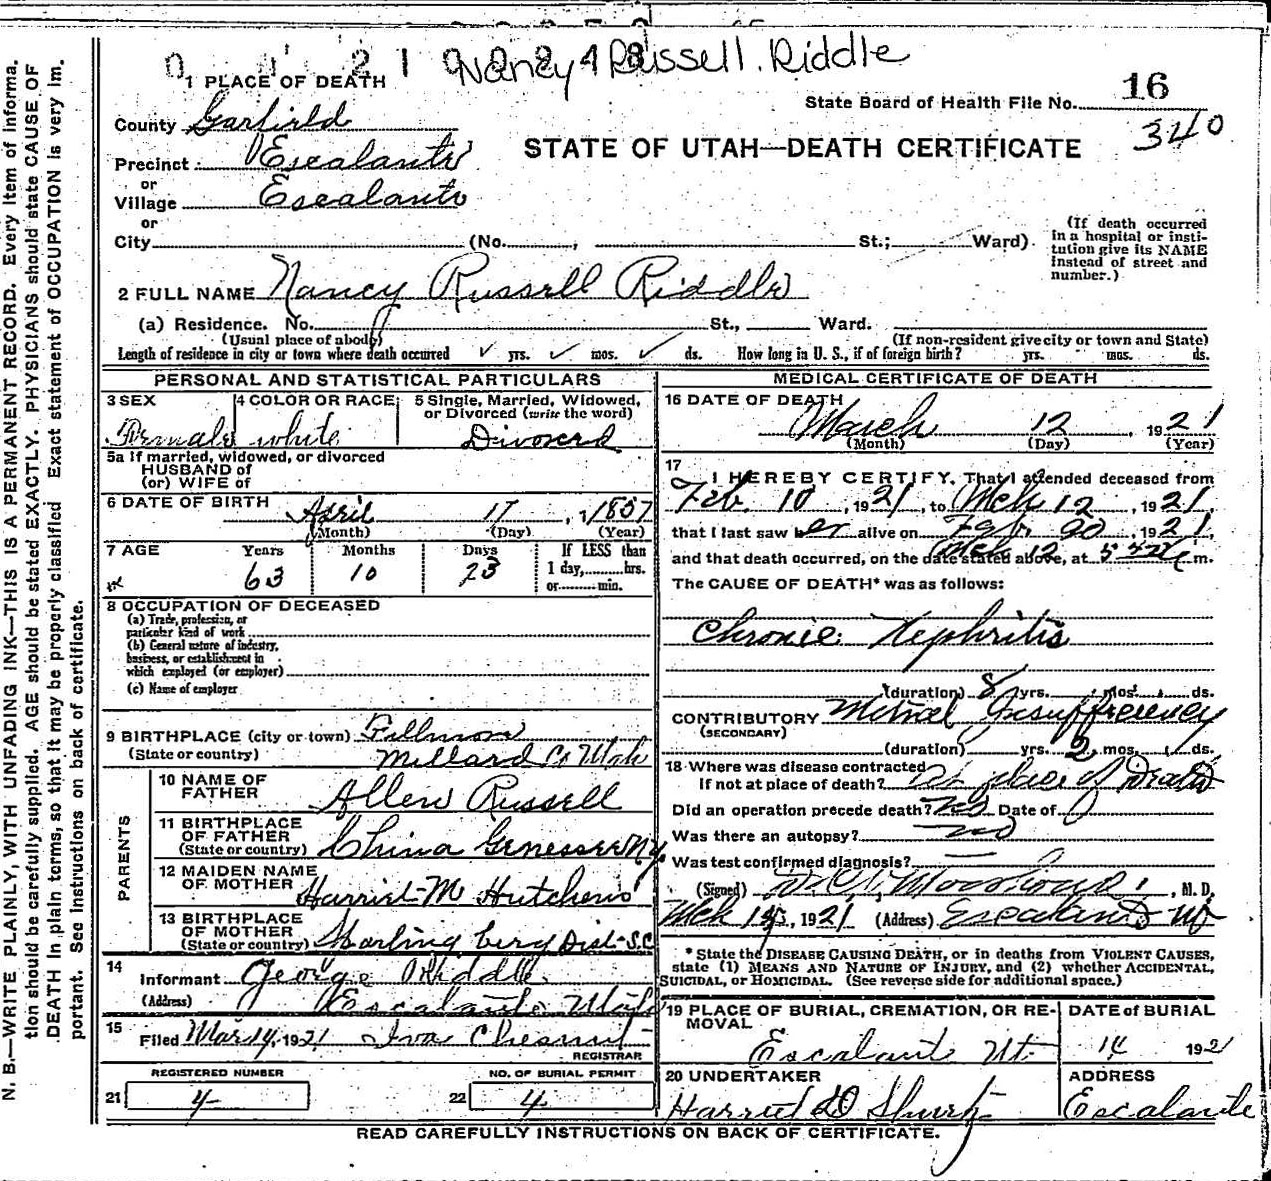 Nancy Russell. Riddle
1 PLACE OF DEATH
State Board of Health File No. 16
340
County Garfield
STATE OF UTAH—DEATH CERTIFICATE
Precinct Escalante
or
Village Escalante
or
City (No. , St.; Ward)
(If death occurred in a hospital or insti-
tution give its NAME
instead of street and
number.)
2 FULL NAME Nancy Russell Riddle
(a) Residence. No. St., Ward.
(Usual place of abode) (If non-resident give city or town and State)
Length of residence in city or town where death occurred yrs. mos. ds. How long in U. S., if of foreign birth? yrs. mos. ds.
PERSONAL AND STATISTICAL PARTICULARS
3 SEX 4 COLOR OR RACE 5 Single, Married, Widowed,
or Divorced (write the word)
Female white Divorced
5a If married, widowed, or divorced
HUSBAND of
(or) WIFE of
6 DATE OF BIRTH April 17, 1857
(Month) (Day) (Year)
7 AGE Years Months Days If LESS than
63 10 23 1 day, hrs.
or min.
8 OCCUPATION OF DECEASED
(a) Trade, profession, or
particular kind of work
(b) General nature of industry,
business, or establishment in
which employed (or employer)
(c) Name of employer
9 BIRTHPLACE (city or town) Fillmore
(State or country) Millard Co Utah
PARENTS
10 NAME OF
FATHER Allen Russell
11 BIRTHPLACE
OF FATHER
(State or country) China Genessee N.y.
12 MAIDEN NAME
OF MOTHER Harriet M Hutchens
13 BIRTHPLACE
OF MOTHER
(State or country) Dist S.C
14
Informant George Riddle
(Address) Escalante Utah
15
Filed Mar 14, 1921 Iva Chesnut
REGISTRAR
REGISTERED NUMBER NO. OF BURIAL PERMIT
21 4 22 4
MEDICAL CERTIFICATE OF DEATH
16 DATE OF DEATH
March 12, 1921
(Month) (Day) (Year)
17
I HEREBY CERTIFY, That I attended deceased from
Feb. 10, 1921, to Mch 12, 1921
that I last saw her alive on Feb. 20, 1921,
and that death occurred, on the date stated above, at m.
Mch 12
The CAUSE OF DEATH* was as follows:
Chronic Nephritis
(duration) 8 yrs. mos. ds.
CONTRIBUTORY Mitral Insuffreiency
(SECONDARY)
(duration) yrs. 2 mos. ds.
18 Where was disease contracted
If not at place of death? at place of Death
Did an operation precede death? no Date of
Was there an autopsy? no
Was test confirmed diagnosis?
(Signed) , M. D.
Mch 1921 (Address) Escalante Ut
* State the DISEASE CAUSING DEATH, or in deaths from VIOLENT CAUSES,
state (1) MEANS AND NATURE OF INJURY, and (2) whether ACCIDENTAL,
SUICIDAL, or HOMICIDAL. (See reverse side for additional space.)
19 PLACE OF BURIAL, CREMATION, OR RE-
MOVAL
DATE of BURIAL
Escalante Ut. 14 1921
20 UNDERTAKER ADDRESS
Harriet D Shurtz Escalante
READ CAREFULLY INSTRUCTIONS ON BACK OF CERTIFICATE.
N. B.—WRITE PLAINLY, WITH UNFADING INK—THIS IS A PERMANENT RECORD. Every item of informa-
tion should be carefully supplied. AGE should be stated EXACTLY. PHYSICIANS should state CAUSE OF
DEATH in plain terms, so that it may be properly classified Exact statement of OCCUPATION is very im-
portant. See instructions on back of certificate.